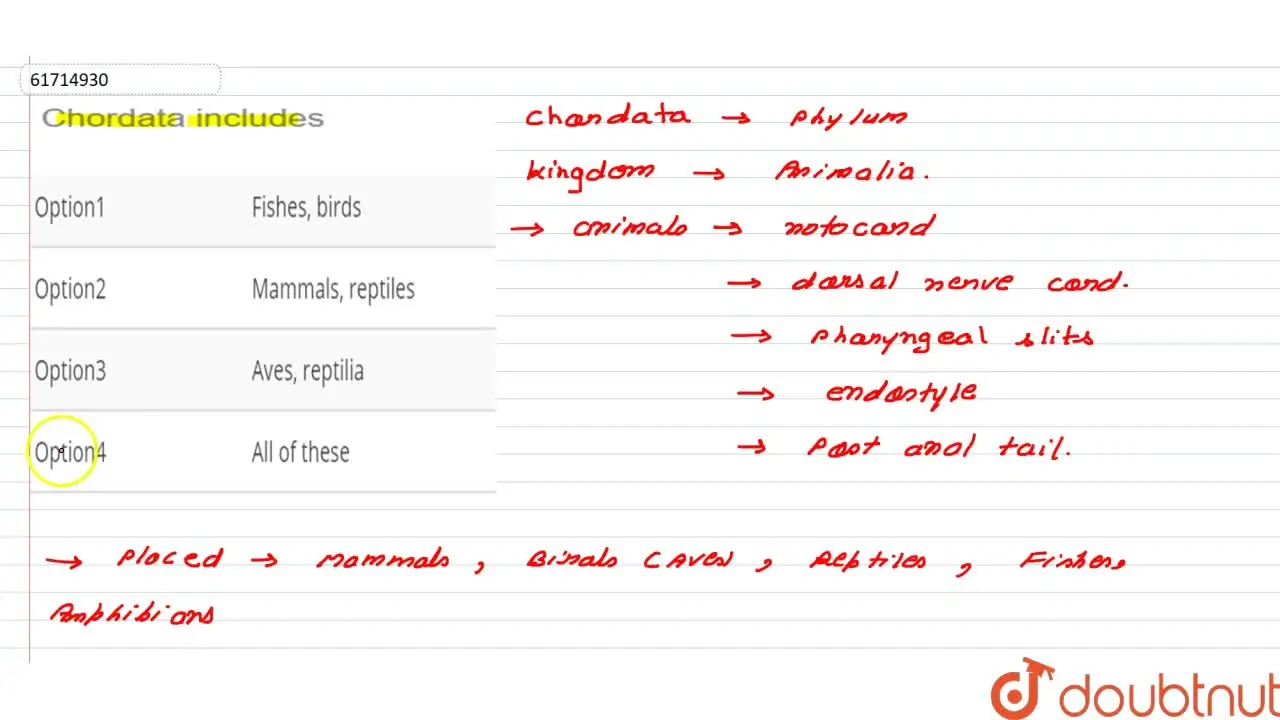 61714930
Chordata includes
Option1 Fishes, birds
Option2 Mammals, reptiles
Option3 Aves, reptilia
Option4 All of these
Chordata → Phylum
kingdom → Animalia.
→ animals → notocord
→ dorsal nerve cord.
→ Pharyngeal slits
→ endostyle
→ Post anal tail.
→ Placed → Mammals, Birds (Aves), Reptiles, Fishes,
Amphibians
doubtnut